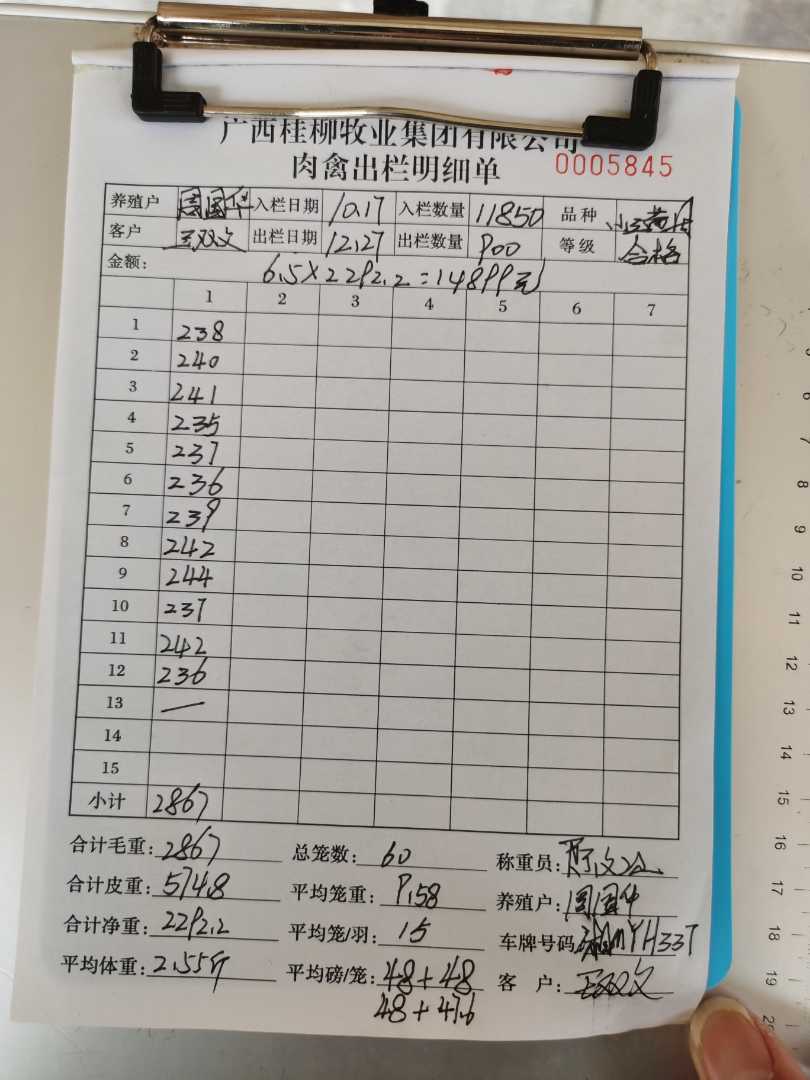 广西桂柳牧业集团有限公司
肉禽出栏明细单 0005845
养殖户 周国华 入栏日期 10.17 入栏数量 11850 品种
客户 王双文 出栏日期 12.27 出栏数量 900 等级 合格
金额: 6.5×2292.2=14899元
1 2 3 4 5 6 7
1 238
2 240
3 241
4 235
5 237
6 236
7 239
8 242
9 244
10 237
11 242
12 236
13 —
14
15
小计 2867
合计毛重: 2867 总笼数: 60 称重员:
合计皮重: 574.8 平均笼重: 9.58 养殖户: 周国华
合计净重: 2292.2 平均笼/羽: 15 车牌号码: MYH337
平均体重: 2.55斤 平均磅/笼: 48+48 客 户: 王双文
48+47.6